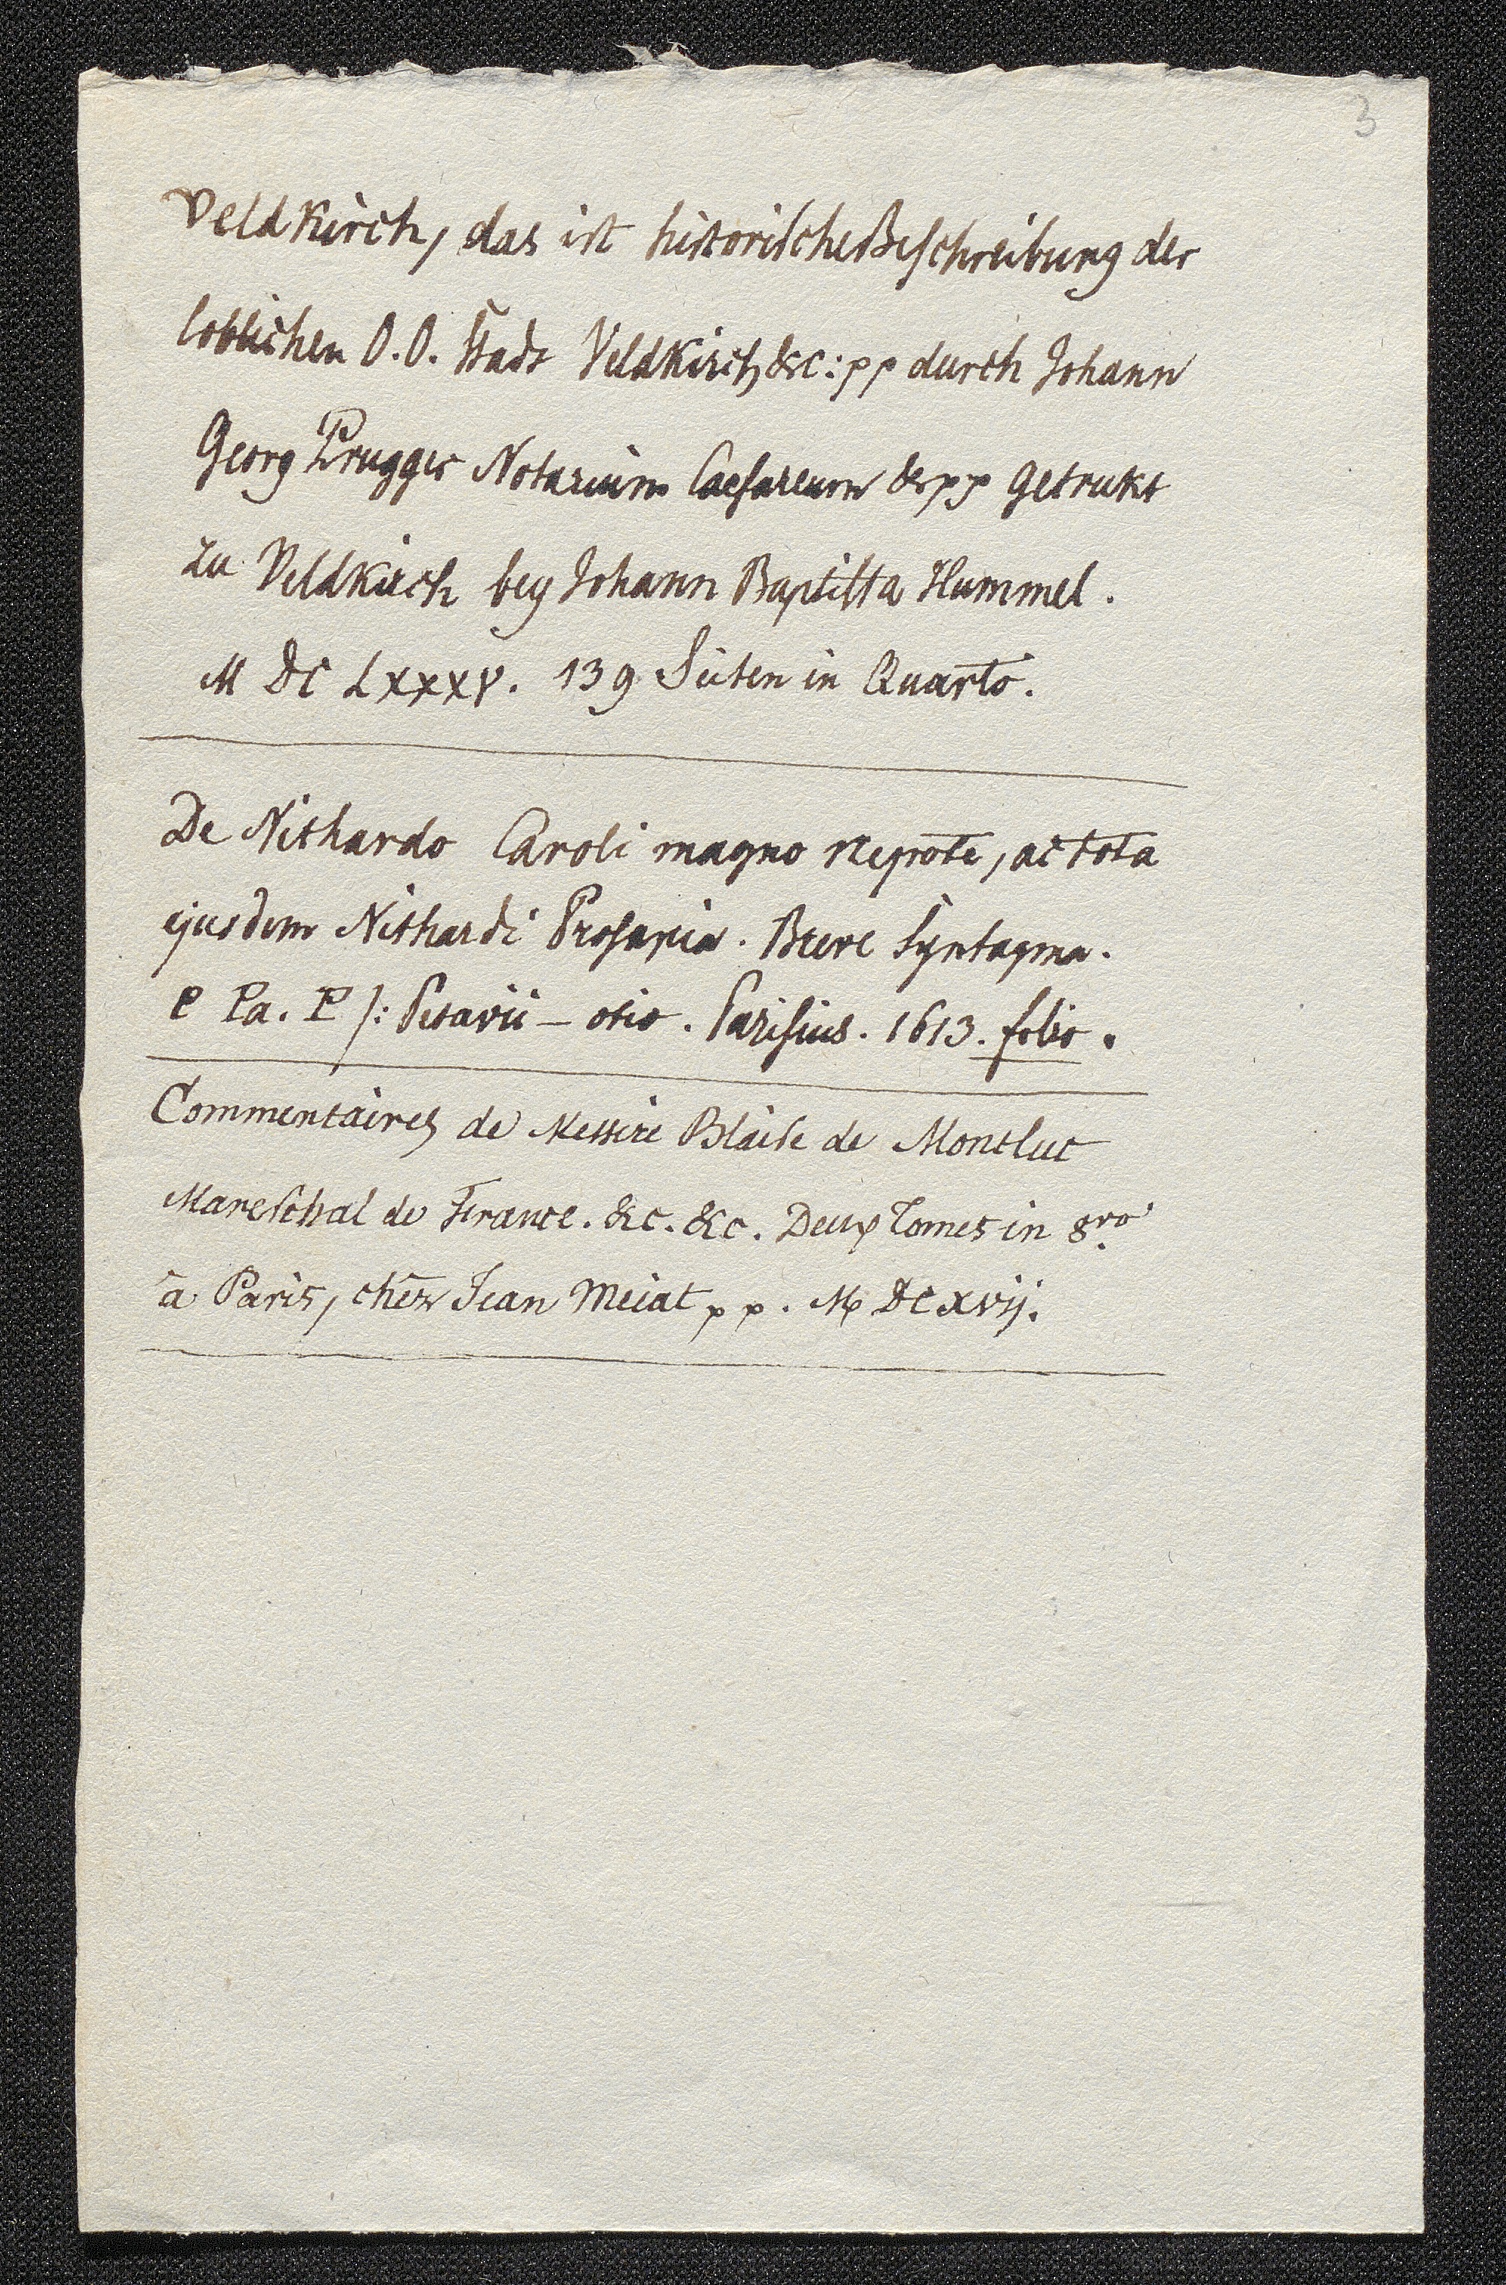 3
Veldkirch, das ist historische Beschreibung der
loblichen O.O. Stadt Veldkirch &c: pp durch Johann
Georg Prugger Notarium Caesareum &c pp getrukt
zu Veldkirch bey Johann Baptista Hummel.
M DC LXXXV. 139 Seiten in Quarto.
De Nithardo Caroli magno Nepote, ac tota
ejusdem Nithardi Prosapia. Breve Syntagma.
e Pa. P): Petavii - otio. Parisius. 1613. folio.
Commentaires de Messire Blaise de Montluc
Mareschal de France. &c. &c. Deux Tomes in 8vo
a Paris, chez Jean Meiat pp. M DC xvij.